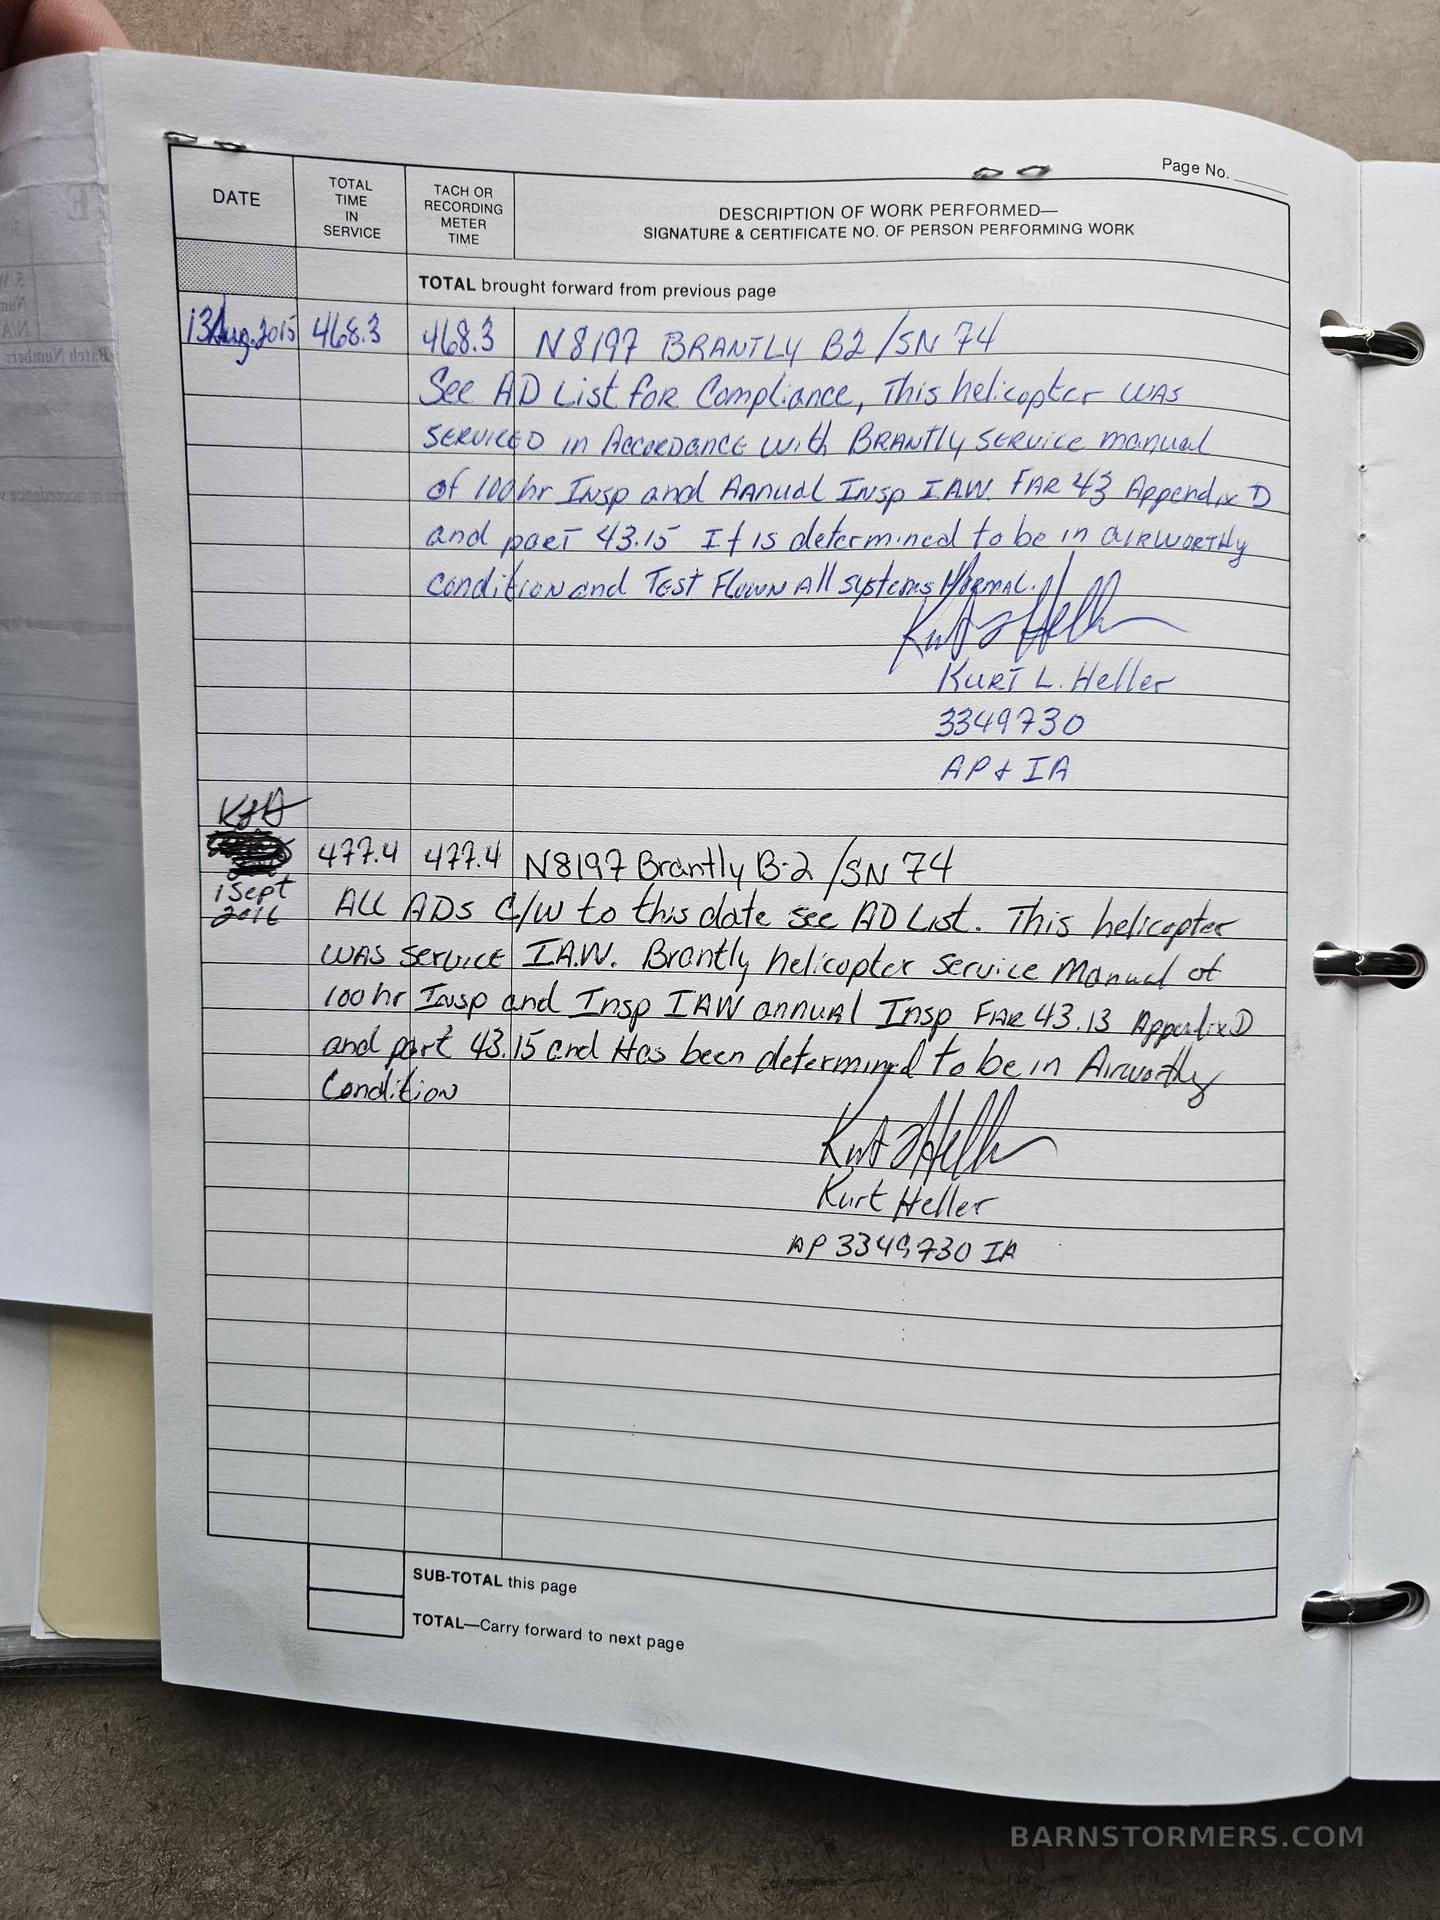 Page No.
DATE
TOTAL
TIME
IN
SERVICE
TACH OR
RECORDING
METER
TIME
DESCRIPTION OF WORK PERFORMED—
SIGNATURE & CERTIFICATE NO. OF PERSON PERFORMING WORK
TOTAL brought forward from previous page
13Aug.2015 468.3 468.3 N8197 BRANTLY B2/SN 74
See AD List for Compliance, This helicopter was
serviced in Accordance with Brantly service manual
of 100hr Insp and Annual Insp I.A.W. FAR 43 Appendix D
and part 43.15 It is determined to be in airworthy
condition and Test Flown All systems Normal.
Kurt L Heller
Kurt L. Heller
3349730
AP & IA
KLH
477.4 477.4 N8197 Brantly B-2/SN 74
1 Sept
2016
All ADs C/W to this date see AD List. This helicopter
was service I.A.W. Brantly helicopter service Manual of
100 hr Insp and Insp IAW annual Insp FAR 43.13 Appendix D
and part 43.15 and Has been determined to be in Airworthy
Condition
Kurt L Heller
Kurt Heller
AP 3349730 IA
SUB-TOTAL this page
TOTAL—Carry forward to next page
BARNSTORMERS.COM